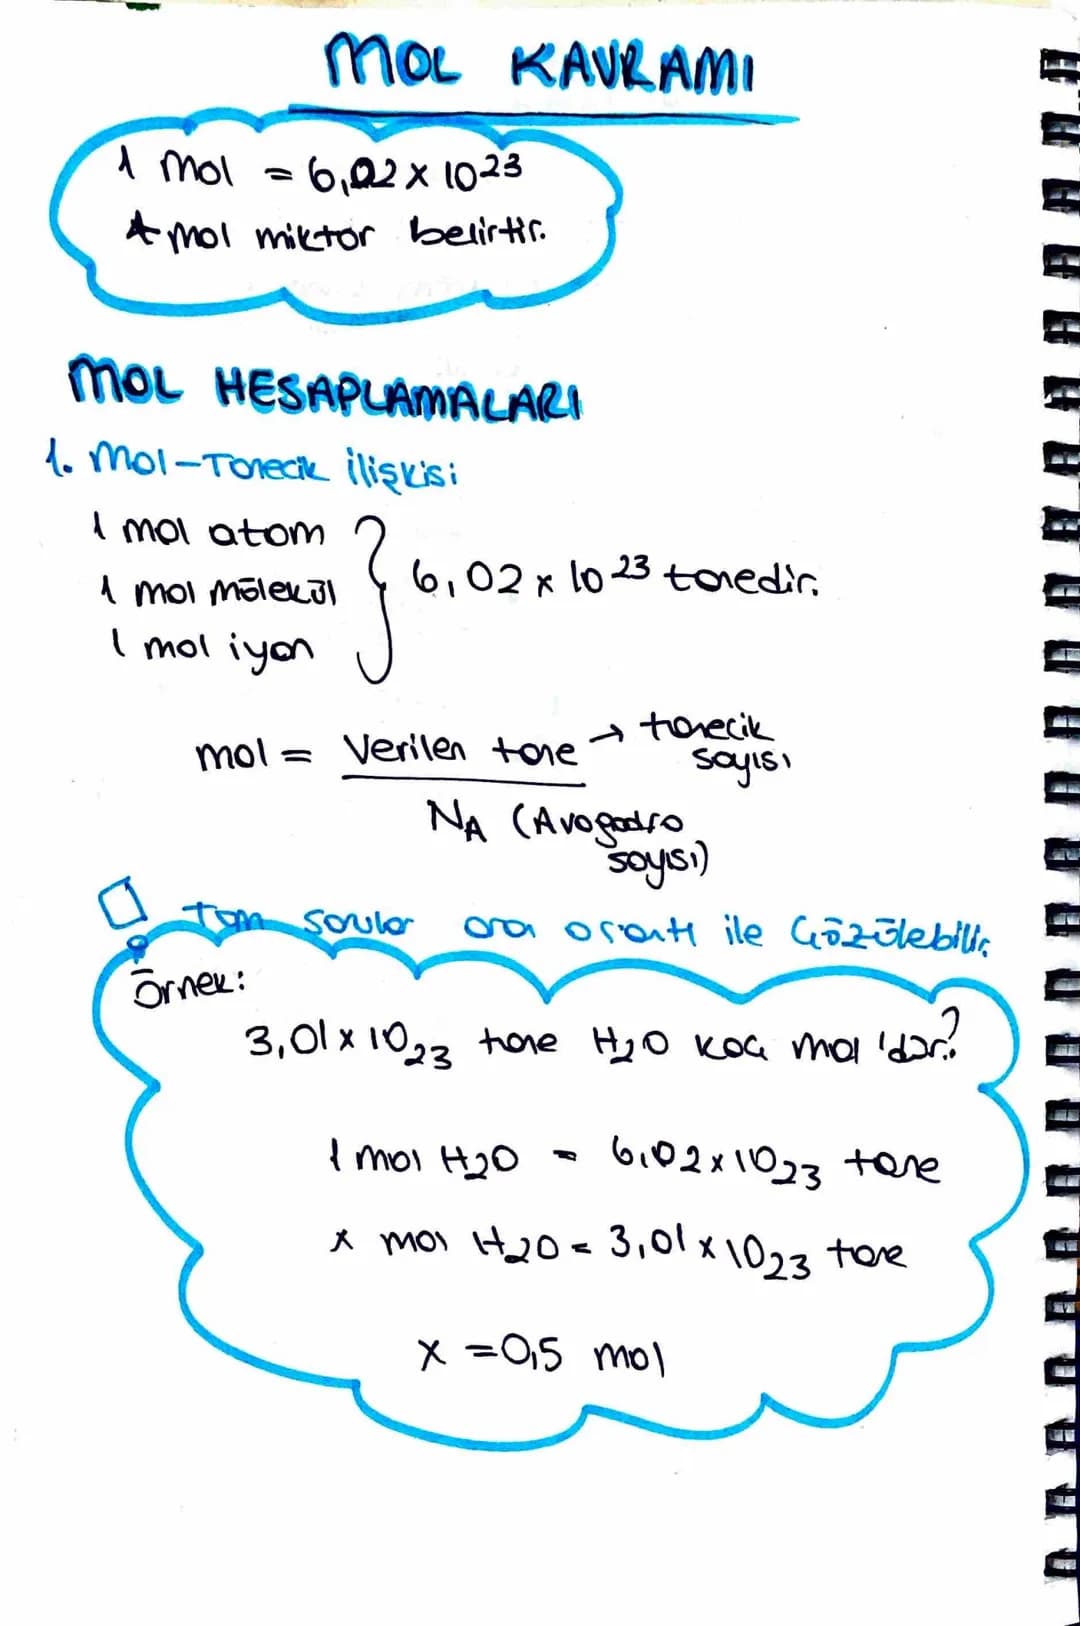 MOL KAVRAMI
1 mol = 6,02 x 10²³
* mol miktar belirtir.
MOL HESAPLAMALARI
1. Mol-Tanecik ilişkisi
1 mol atom
1 mol molekül } 6,02 x 10²³ tanedir.
1 mol iyon
mol = Verilen tane → tanecik sayısı
NA (Avogadro sayısı)
Tüm sorular oran orantı ile çözülebilir.
Örnek:
3,01 x 10₂₃ tane H₂O kaç mol'dür?
1 mol H₂O = 6,02 x 10₂₃ tane
x mol H₂O = 3,01 x 10₂₃ tane
x = 0,5 mol